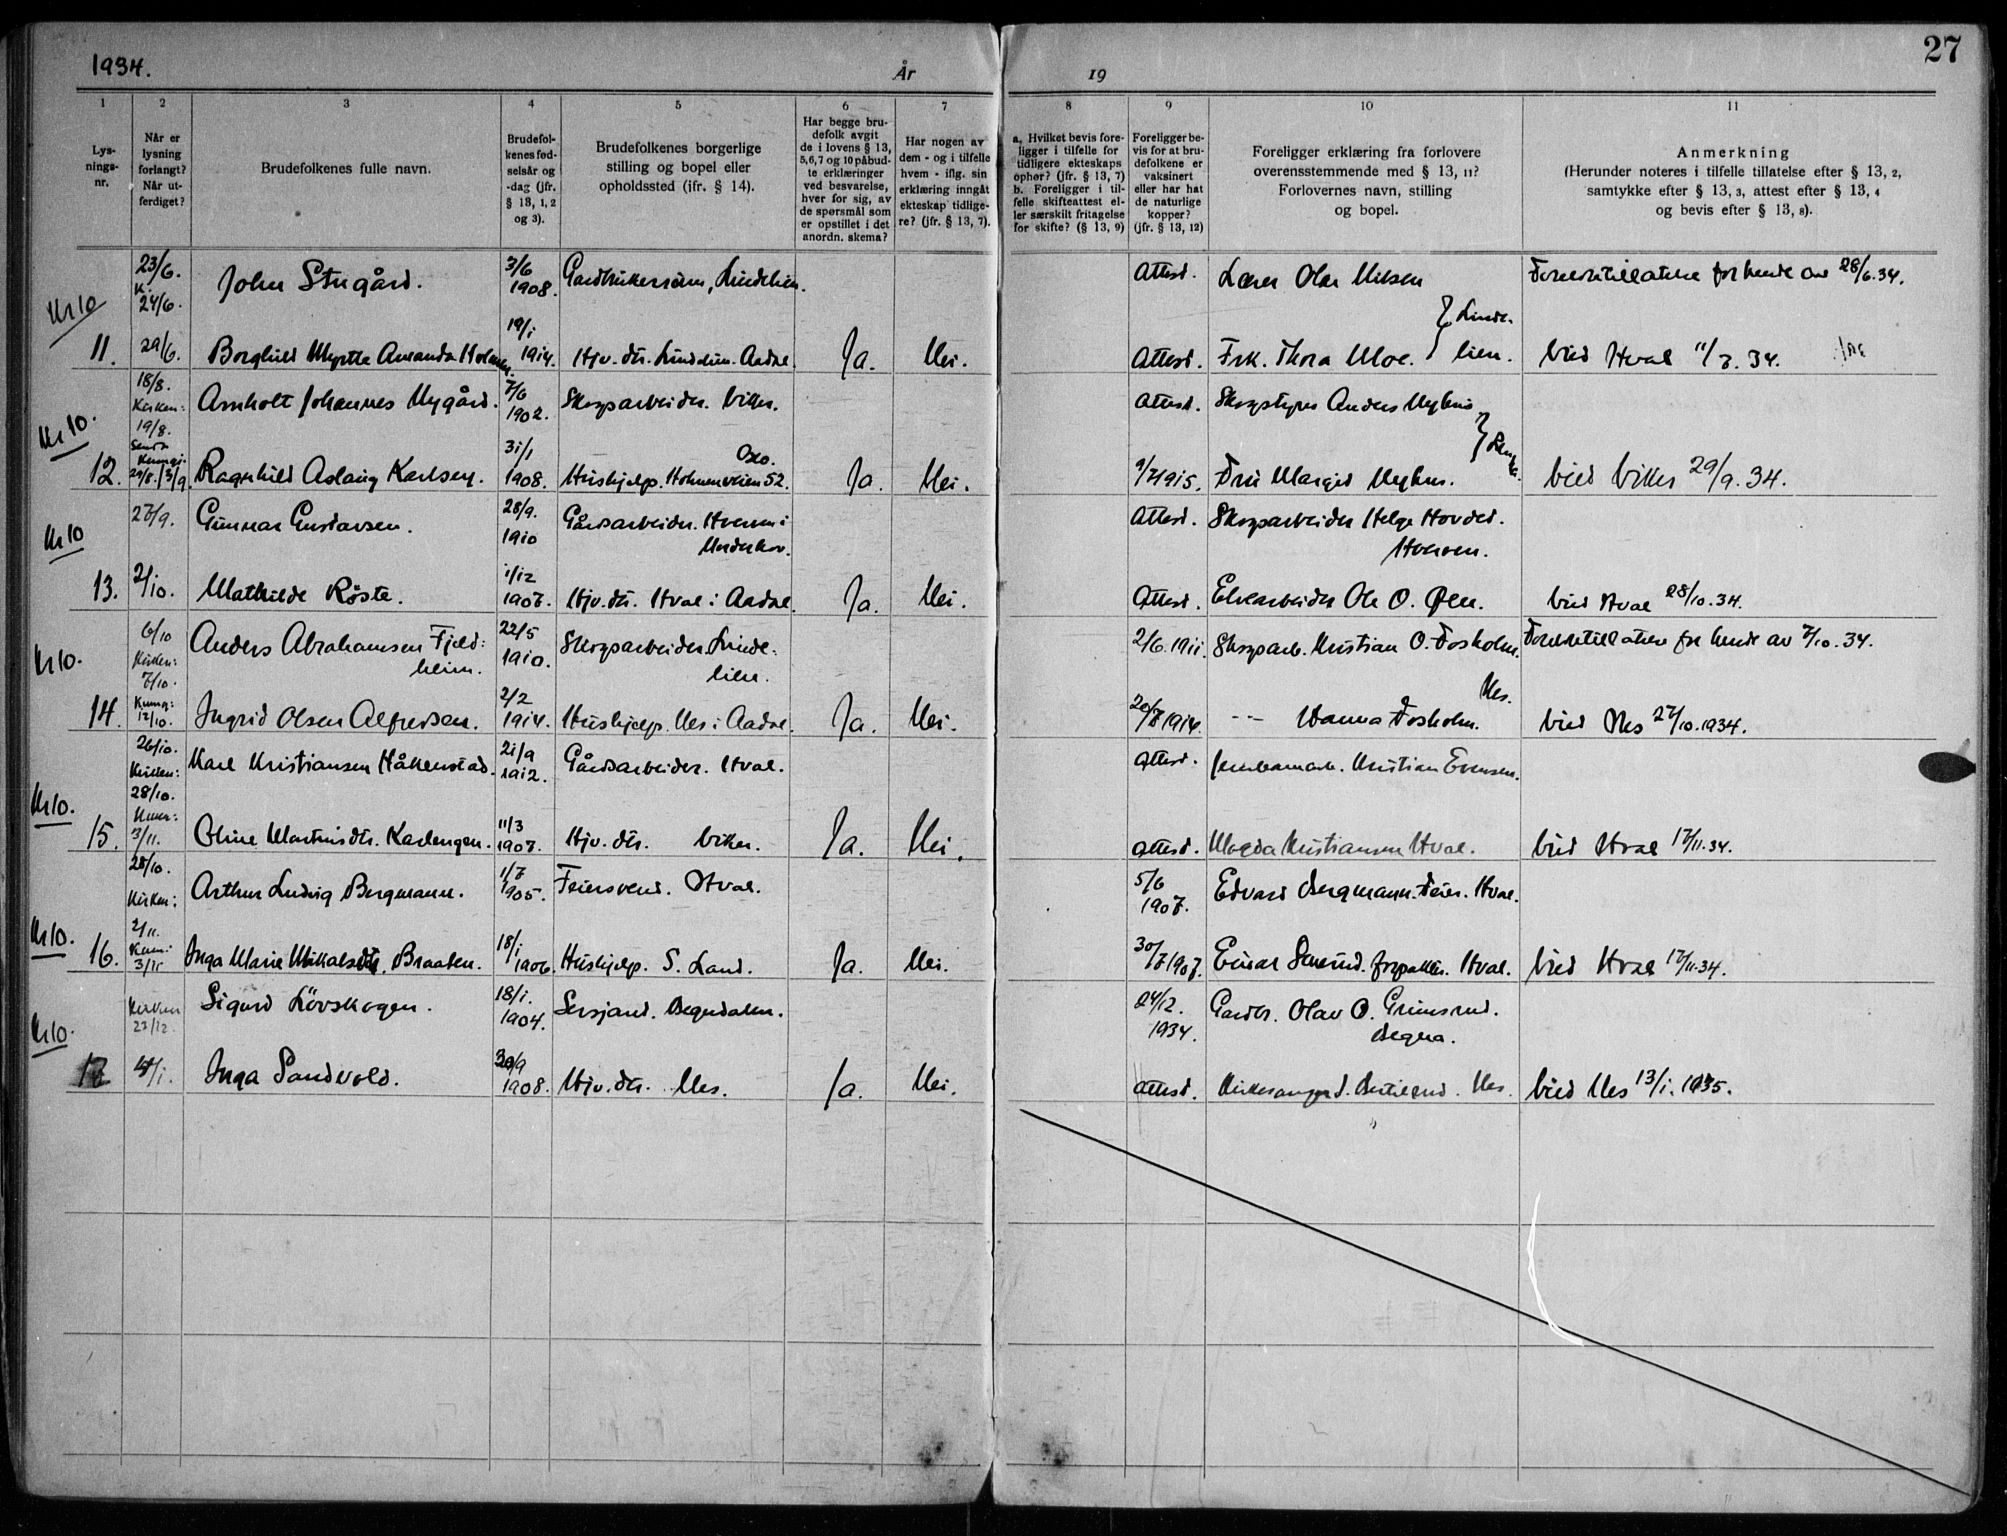 1934.
År
19
27
1
2
3
4
5
6
7
8
9
10
11
Lys-
nings-
nr.
Når er
lysning
forlangt?
Når ut-
ferdiget?
Brudefolkenes fulle navn.
Brudefol-
kenes fød-
selsår og
-dag (jfr.
§ 13, 1, 2
og 3).
Brudefolkenes borgerlige
stilling og bopel eller
opholdssted (jfr. § 14).
Har begge bru-
defolk avgit
de i lovens § 13,
5,6,7 og 10 påbud-
te erklæringer
ved besvarelse,
hver for sig, av
de spørsmål som
er opstillet i det
anordn. skema?
Har nogen av
dem - og i tilfelle
hvem - iflg. sin
erklæring inngåt
ekteskap tidlige-
re? (jfr. § 13, 7).
a. Hvilket bevis fore-
ligger i tilfelle for
tidligere ekteskaps
ophør? (jfr. § 13, 7)
b. Foreligger i til-
felle skifteattest el-
ler særskilt fritagelse
for skifte? (§ 13, 9)
Foreligger be-
vis for at bru-
defolkene er
vaksinert
eller har hat
de naturlige
kopper?
(jfr. § 13, 12)
Foreligger erklæring fra forlovere
overensstemmende med § 13, 11?
Forlovernes navn, stilling
og bopel.
Anmerkning
(Herunder noteres i tilfelle tillatelse efter § 13, 2,
samtykke efter § 13, 3, attest efter § 13, 4
og bevis efter § 13, 8).
Kr 10
23/6.
K.
24/6.
John Stugård.
3/6
1908.
Gardbrukersønn, Lindelien.
Attest.
Lærer Olav Nilsen
28/6.34.
11.
29/6.
Borghild Myrtle Amanda Holmen.
19/1
1914.
Hjv. dtr. Lindelien. Aadal.
Ja.
Nei.
Attest.
Frk. Thora Moe.
} Linde-
lien.
Vied Hval 11/7. 34.
Kr 10.
18/8.
Kirken:
19/8.
Arnholt Johannes Nygård.
7/6
1902.
Skogsarbeider. Viker.
Attest.
Skogstyrer Anders Myhre
12.
29/8. 3/9.
Ragnhild Aslaug Karlsen.
31/1
1908.
Oslo.
Hushjelp. Holmenveien 52.
Ja.
Nei.
1915.
Fru Margit Myhre.
Vied Viker 29/9. 34.
Kr 10
27/9.
Gunnar Gustavsen.
28/9.
1910
Gårdsarbeider. Hverven i
Norderhov.
Attest.
Skogsarbeider Helge Hovdet.
Hverven.
13.
2/10.
Mathilde Røste.
1/12
1907.
Hjv. dtr. Hval i Aadal.
Ja.
Nei.
Attest.
Elvearbeider Ole O. Øen.
Vied Hval 28/10. 34.
Kr 10.
6/10
Kirken:
7/10.
Anders Abrahamsen Fjeld-
heim.
22/5
1910.
Skogsarbeider. Linde-
lien.
2/6. 1911.
Skogsarb. Kristian O. Fosholm.
7/10. 34.
14.
Kunng:
12/10.
Ingrid Olsen Alfredsen.
2/2
1914.
Hushjelp. Nes i Aadal.
Ja.
Nei.
20/8 1914.
Nes.
-- Wanna Fosholm.
Vied Nes 27/10. 1934.
Kr 10.
26/10.
Kirken:
28/10.
Karl Kristiansen Håkenstad.
21/9
1912.
Gårdsarbeider. Hval.
Attest.
Jernbanearb. Kristian Evensen.
15.
3/11.
Oline Martinsdtr. Karlengen.
11/3
1907.
Hjv. dtr. Viker.
Ja.
Nei.
attest.
Magda Kristiansen Hval.
Vied Hval 17/11. 34.
Kr 10.
28/10.
Kirken:
Arthur Ludvig Bergmann.
1/7
1905.
Feiersvend. Hval.
5/6
1907.
Edvard Bergmann. Feier. Hval.
16.
2/11.
Kunn:
3/11
Inga Marie Mikalsdtr. Braaten.
18/1
1906.
Hushjelp. S. Land.
Ja.
Nei.
30/7 1907.
Vied Hval 17/11. 34.
Kr 10.
Kirken
23/12.
Sigurd Lövskogen.
18/1.
1904.
Sersjant. Begndalen.
24/12.
1934.
Gardbr. Olav O. Grimsrud.
Begna.
17
4/1.
Inga Sandvold.
30/9
1908.
Hjv. dtr. Nes.
Ja.
Nei.
attest.
Kirkesanger Nes.
Vied Nes 13/1. 1935.